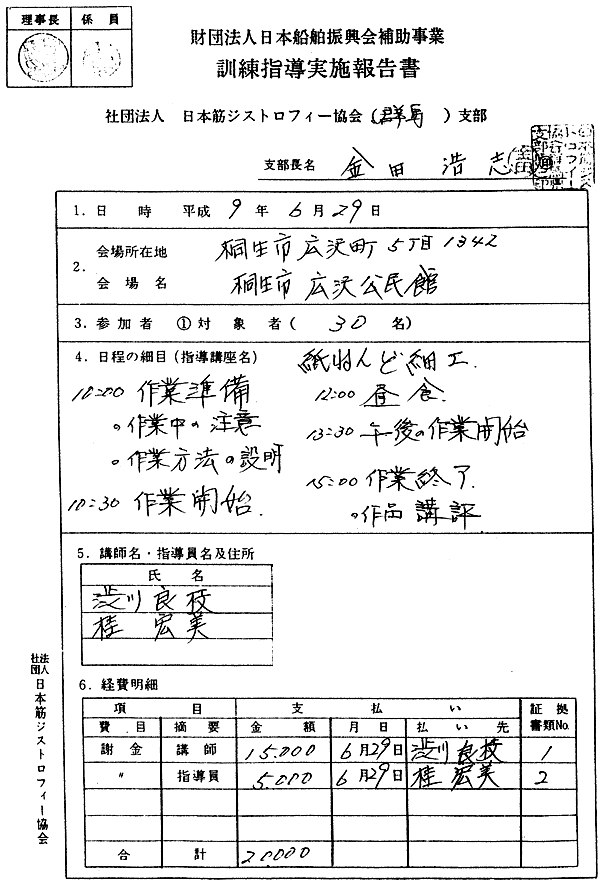 理事長 係員
財団法人日本船舶振興会補助事業
訓練指導実施報告書
社団法人 日本筋ジストロフィー協会(群馬)支部
支部長名 金田 浩志
1.日 時 平成 9 年 6 月 29 日
2.
会場所在地 桐生市広沢町5丁目1342
会場名 桐生市広沢公民館
3.参加者 ①対象者( 30 名)
4.日程の細目(指導講座名) 紙ねんど細工
10:00 作業準備
。作業中の注意
。作業方法の説明
10:30 作業開始.
12:00 昼食.
13:30 午後の作業開始
15:00 作業終了.
。作品講評
5.講師名・指導員名及住所
氏名
渋川良枝
桂 宏美
6.経費明細
項目 支払い 証拠書類No.
費目 摘要 金額 月日 払い先
謝金 講師 15.000 6月29日 渋川良枝 1
〃 指導員 5.000 6月29日 桂 宏美 2
合計 20000
社団法人 日本筋ジストロフィー協会